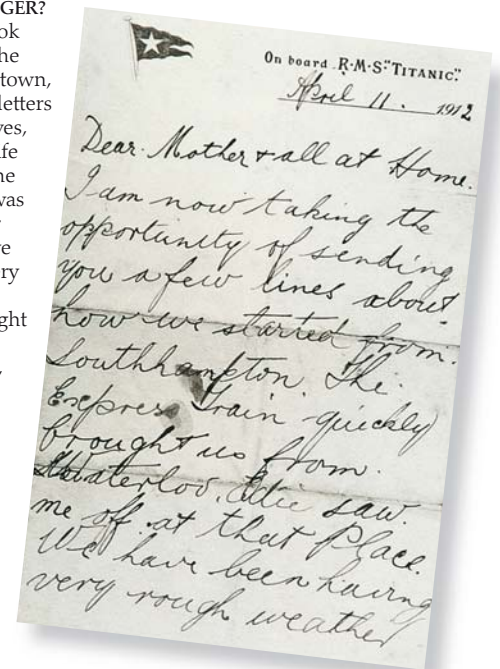 GER?
ok
he
town,
letters
ves,
ife
ne
was
e
ry
ght
On board R·M·S "TITANIC".
April 11. 1912
Dear Mother & all at Home.
I am now taking the
opportunity of sending
you a few lines about
how we started from.
Southhampton. The.
Express Train quickly
brought us from.
Waterloo. Edie saw.
me off at that Place.
We have been having
very rough weather